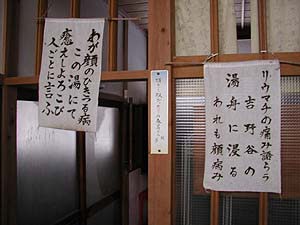 リウマチの痛み語らう
吉野谷の
湯舟に浸る
われも顔病み
わが顔のひきつる病
この湯にて
癒えしよろこび
人ごとに言ふ